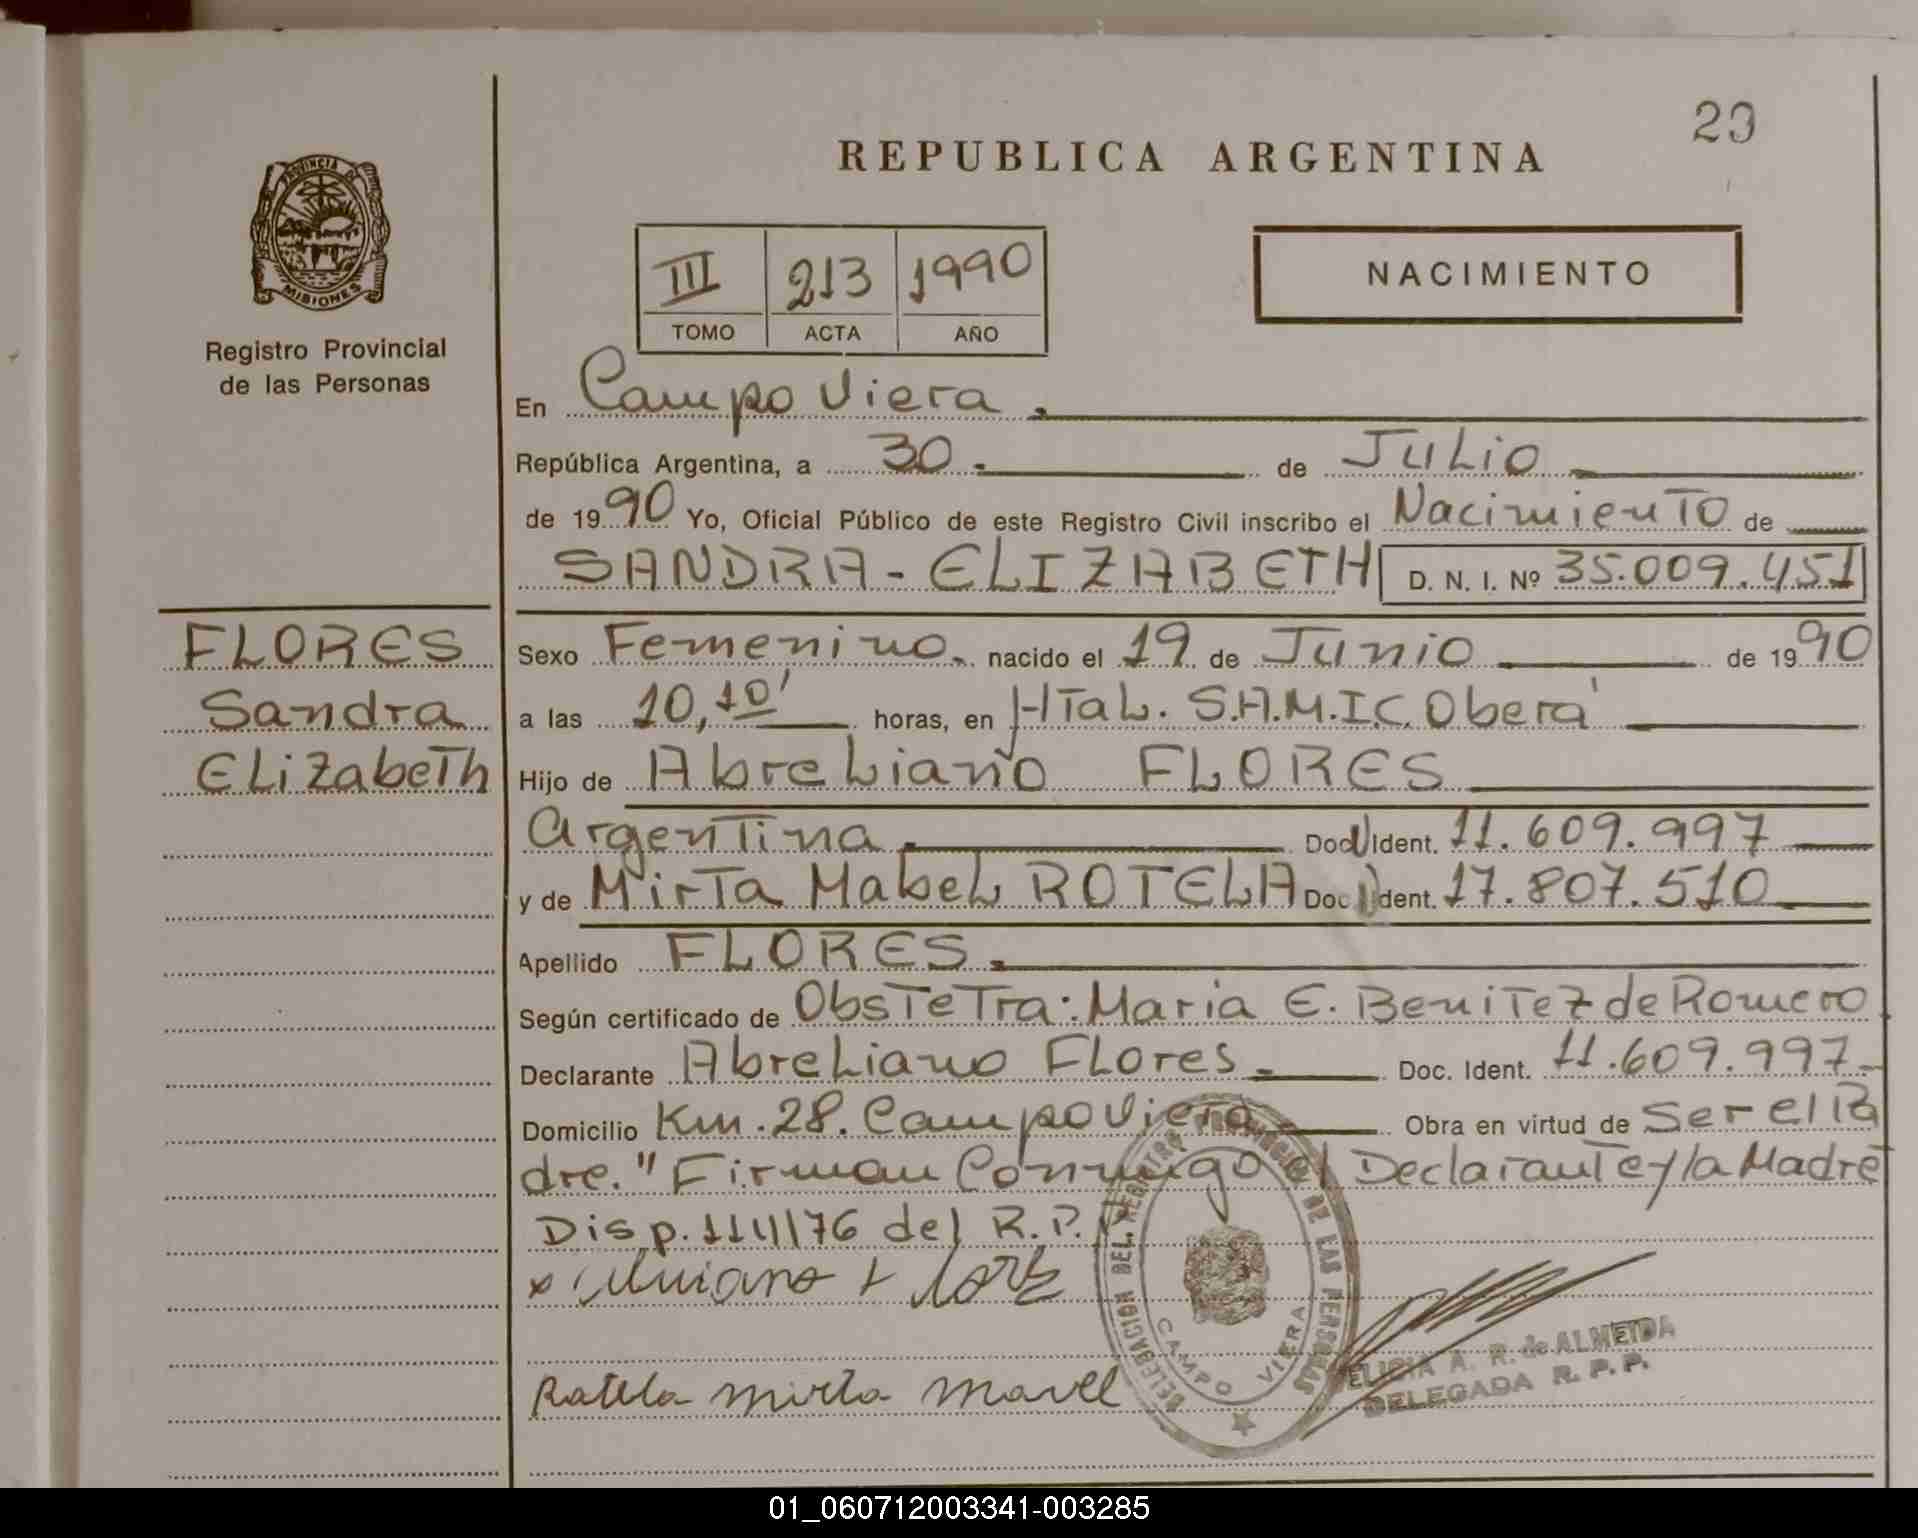 23
REPUBLICA ARGENTINA
PROVINCIA DE
MISIONES
Registro Provincial
de las Personas
III 213 1990
TOMO ACTA AÑO
NACIMIENTO
En Campo Viera.
República Argentina, a 30.- de Julio
de 1990 Yo, Oficial Público de este Registro Civil inscribo el Nacimiento de
SANDRA-ELIZABETH D. N. I. Nº 35.009.451
FLORES
Sandra
Elizabeth
Sexo Femenino. nacido el 19 de Junio de 1990
a las 10,10' horas, en Htal. S.A.M.I.C. Oberá
Hijo de Abreliano FLORES
Argentina Doc Ident. 11.609.997
y de Mirta Mabel ROTELA Doc Ident. 17.807.510
Apellido FLORES.
Según certificado de Obstetra: Maria E. Benitez de Romero
Declarante Abreliano Flores.- Doc. Ident. 11.609.997-
Domicilio Km. 28. Campo Viera Obra en virtud de Ser el Pa
dre." Firman Conmigo el Declarante y la Madre
Disp. 114/76 del R.P.
Rotela Mirta Mavel
DELEGACION DEL REGISTRO PROVINCIAL DE LAS PERSONAS
CAMPO VIERA
A. R. de ALMEIDA
DELEGADA R. P. P.
01_060712003341-003285